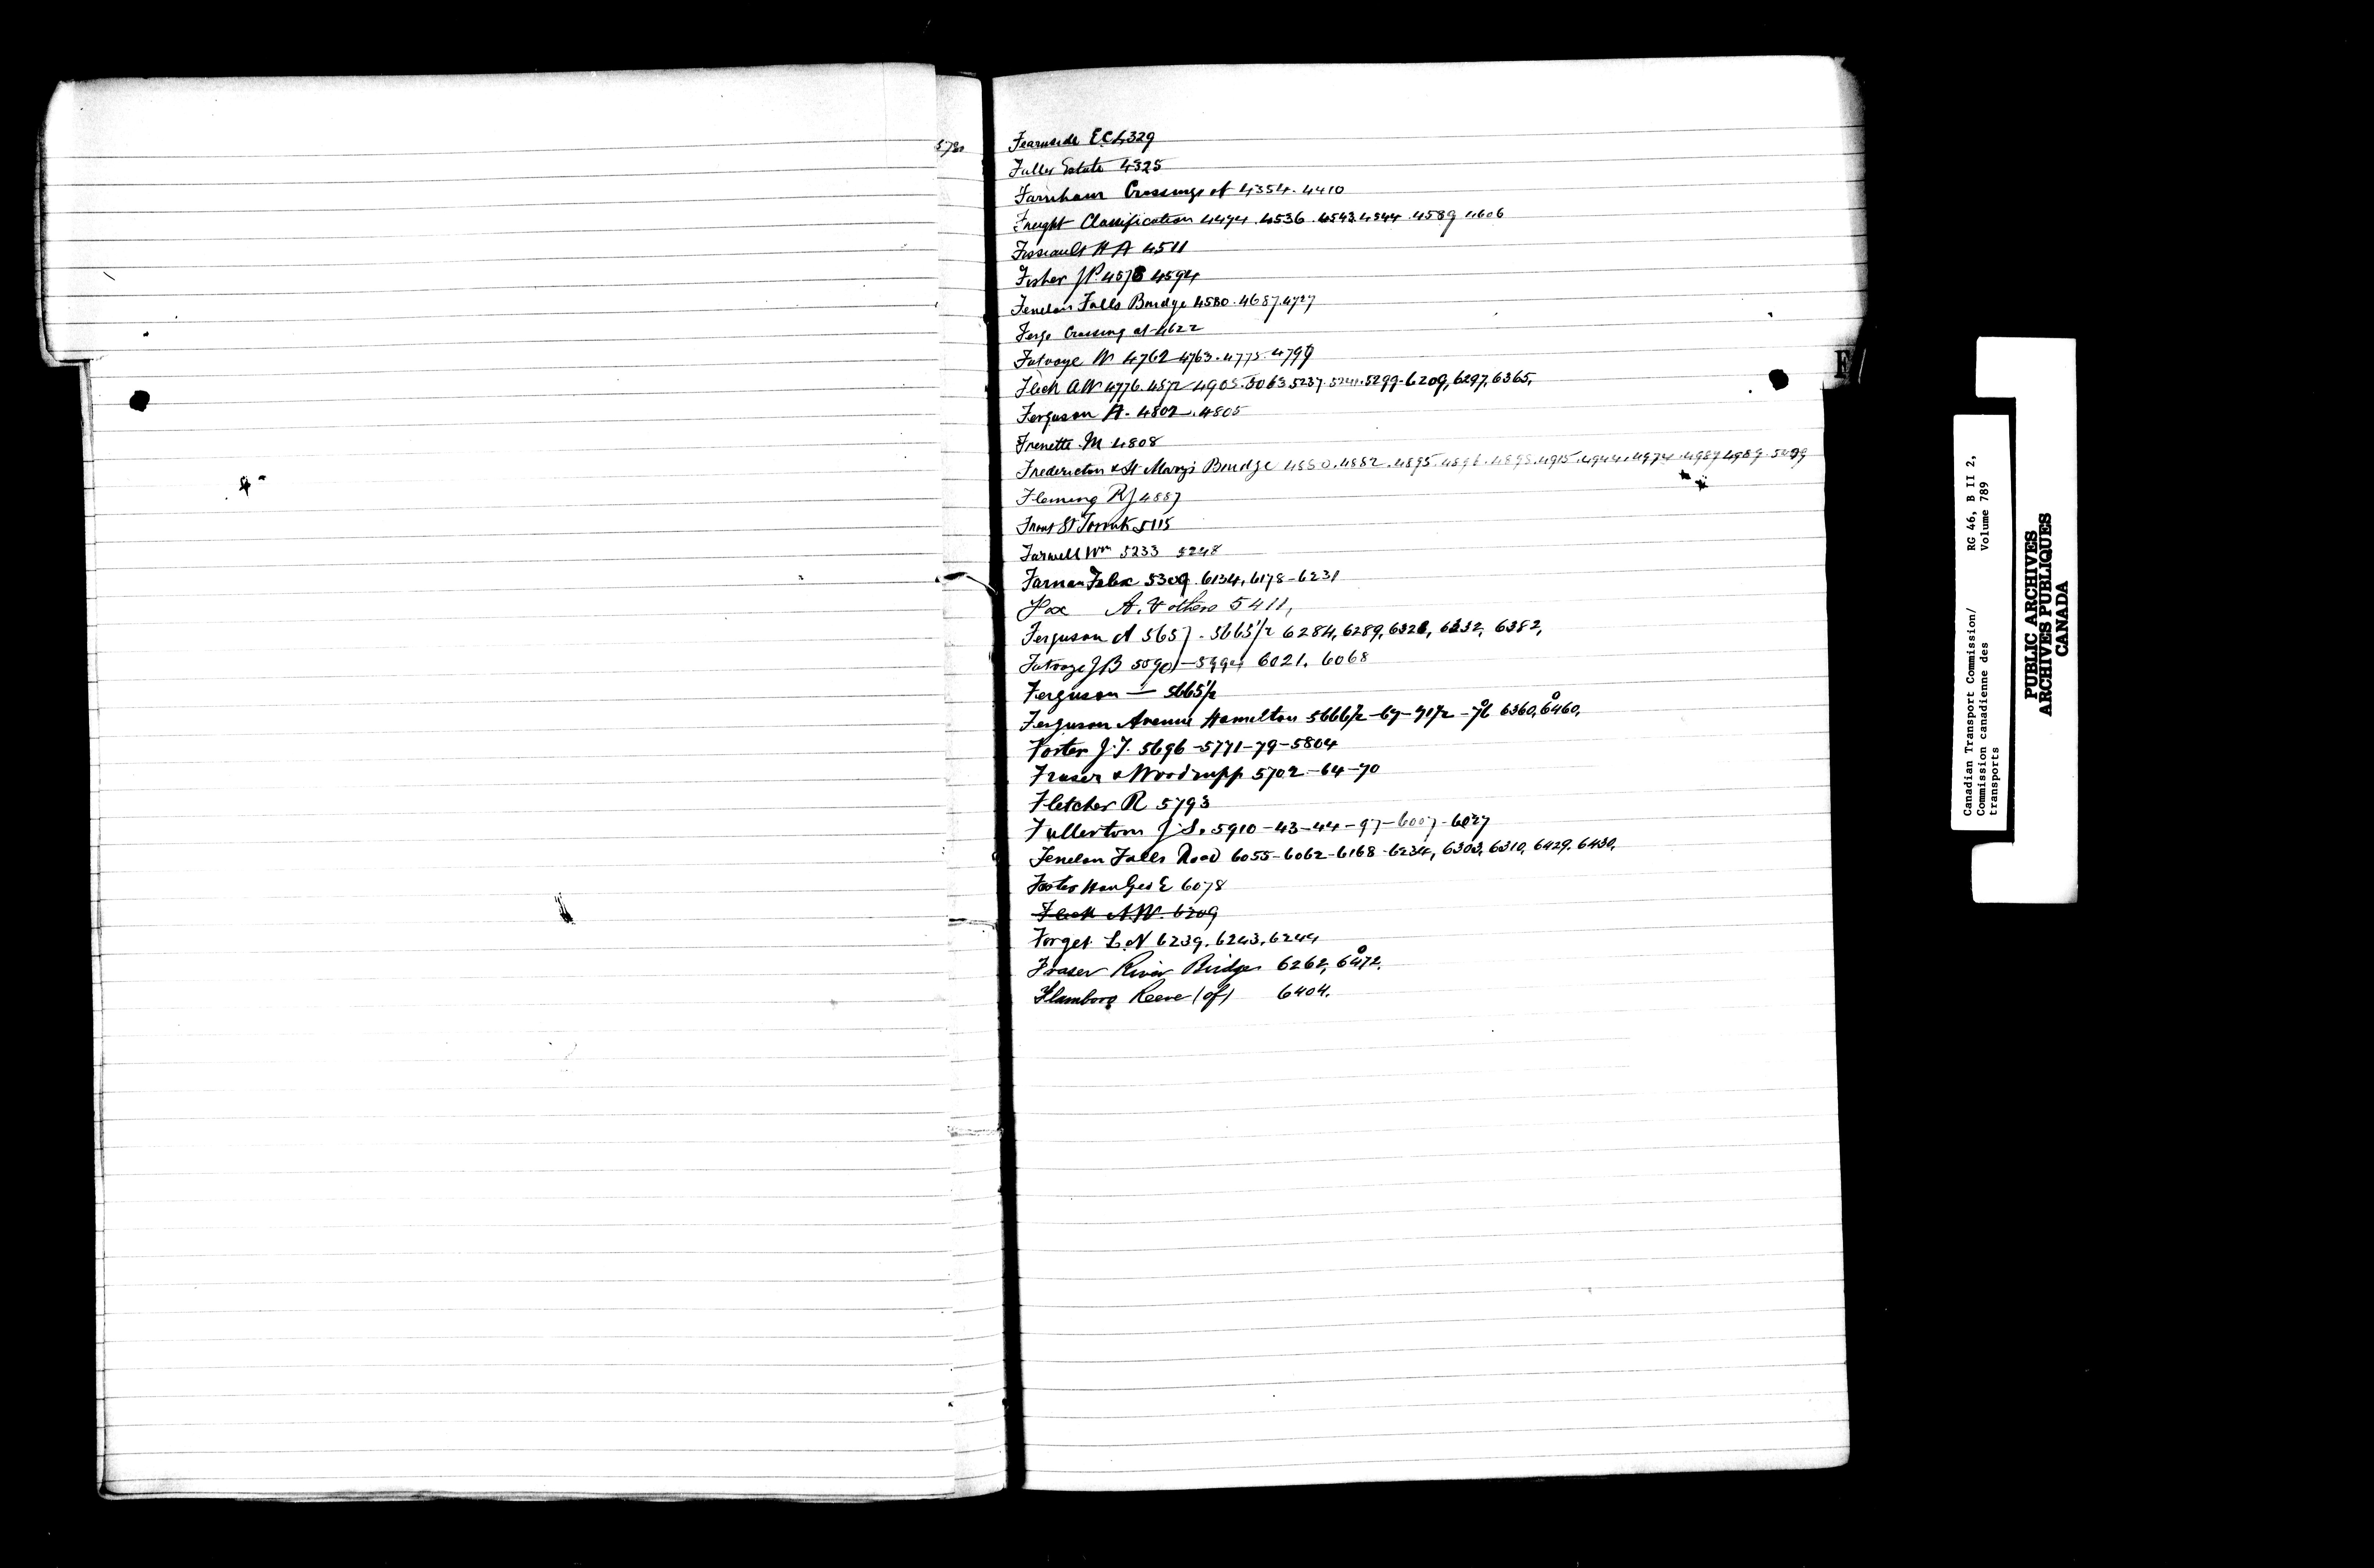 Fearnside E.C. 4329
Fuller Estate 4325
Farnham Crossings at 4354. 4410
Freight Classification 4494. 4536. 4543. 4544. 4589 4606
H A 4511
Fisher J.P. 4578 4594
Fenelon Falls Bridge 4580. 4687. 4727
Crossing at 4622
Futvoye W 4762 4763. 4775. 4799
Fleck A W 4776. 4872 4905. 5063 5237. 5241. 5299. 6209, 6297, 6365,
Ferguson A. 4802. 4805
Frenette M 4808
Fredericton & St Mary's Bridge 4850. 4882. 4895. 4896. 4898. 4915. 4944. 4974. 4987 4989. 5299
Fleming R J 4887
Front St Toronto 5115
Farwell Wm 5233 5248
Farnan Felix 5309. 6134, 6178-6231
Fox A. & others 5411,
Ferguson A 5657 - 5665½ 6284, 6289, 6328, 6332, 6382,
Futvoye J B 5590 - 5994 6021. 6068
Ferguson — 5665½
Ferguson Avenue Hamilton 5666½-67-71½-76 6360, 6460,
Foster J. T. 5696-5771-79-5804
Fraser & Woodruff 5702-64-70
Fletcher R 5793
Fullerton J. S. 5910-43-44-97-6007-6027
Fenelon Falls Road 6055-6062-6168-6234, 6303, 6310, 6429, 6430,
Foster Hon Geo E 6078
Fleck A.W. 6209
Forget L. N 6239. 6243, 6244
Fraser River Bridge 6262, 6472.
Flamboro Reeve (of) 6404.
F
Canadian Transport Commission/
Commission canadienne des
transports
RG 46, B II 2,
Volume 789
PUBLIC ARCHIVES
ARCHIVES PUBLIQUES
CANADA